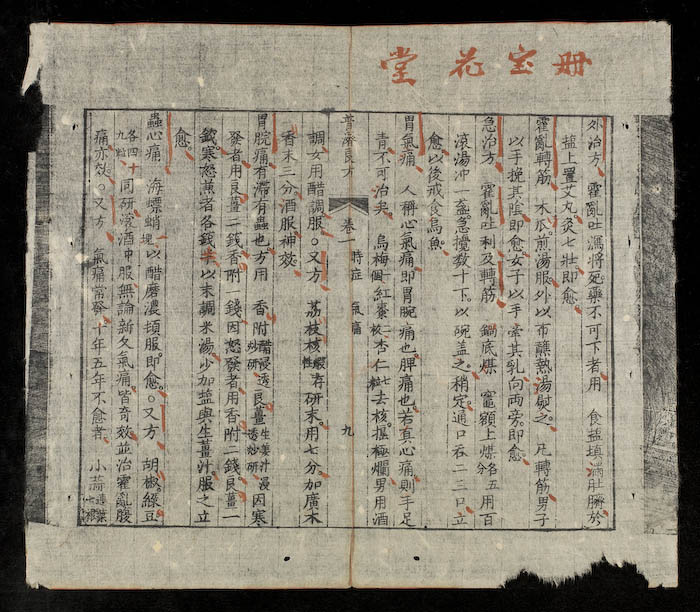 堂花宝册
外治方 霍亂吐瀉將死藥不可下者用 食盐填满肚臍於
盐上置艾丸灸七壯即愈
霍亂轉筋 木瓜煎湯服外以布蘸熱湯熨之 凡轉筋男子
以手挽其陰即愈女子以手牽其乳向两旁即愈
急治方 霍亂吐利及轉筋 鍋底煤 竈額上煤各五分用百
滚湯冲一盏急攪数十下以碗盖之稍定通口吞二三口立
愈以後戒食烏魚。
胃氣痛 人稱心氣痛即胃脘痛也脾痛也若真心痛則手足
青不可治矣 烏梅一個紅棗二枚杏仁七粒去核搥極爛男用酒
調女用醋調服○又方 荔枝核 研末用七分加廣木
香末三分酒服神效
胃脘痛有滞有蟲也方用 香附醋浸透炒研良薑生姜汁浸透炒研因寒
發者用良薑二錢香附一錢因怒發者用香附二錢良薑一
錢寒怒兼者各錢半以末調米湯少加盐與生薑汁服之立
愈
蟲心痛 海螵蛸一塊以醋磨濃頓服即愈○又方 胡椒綠豆
各四十九粒同研濃酒冲服無論新久氣痛皆奇效並治霍亂腹
痛亦效○又方 氣痛常發十年五年不愈者 小蒜
普濟良方 卷一 時症 氣痛 九